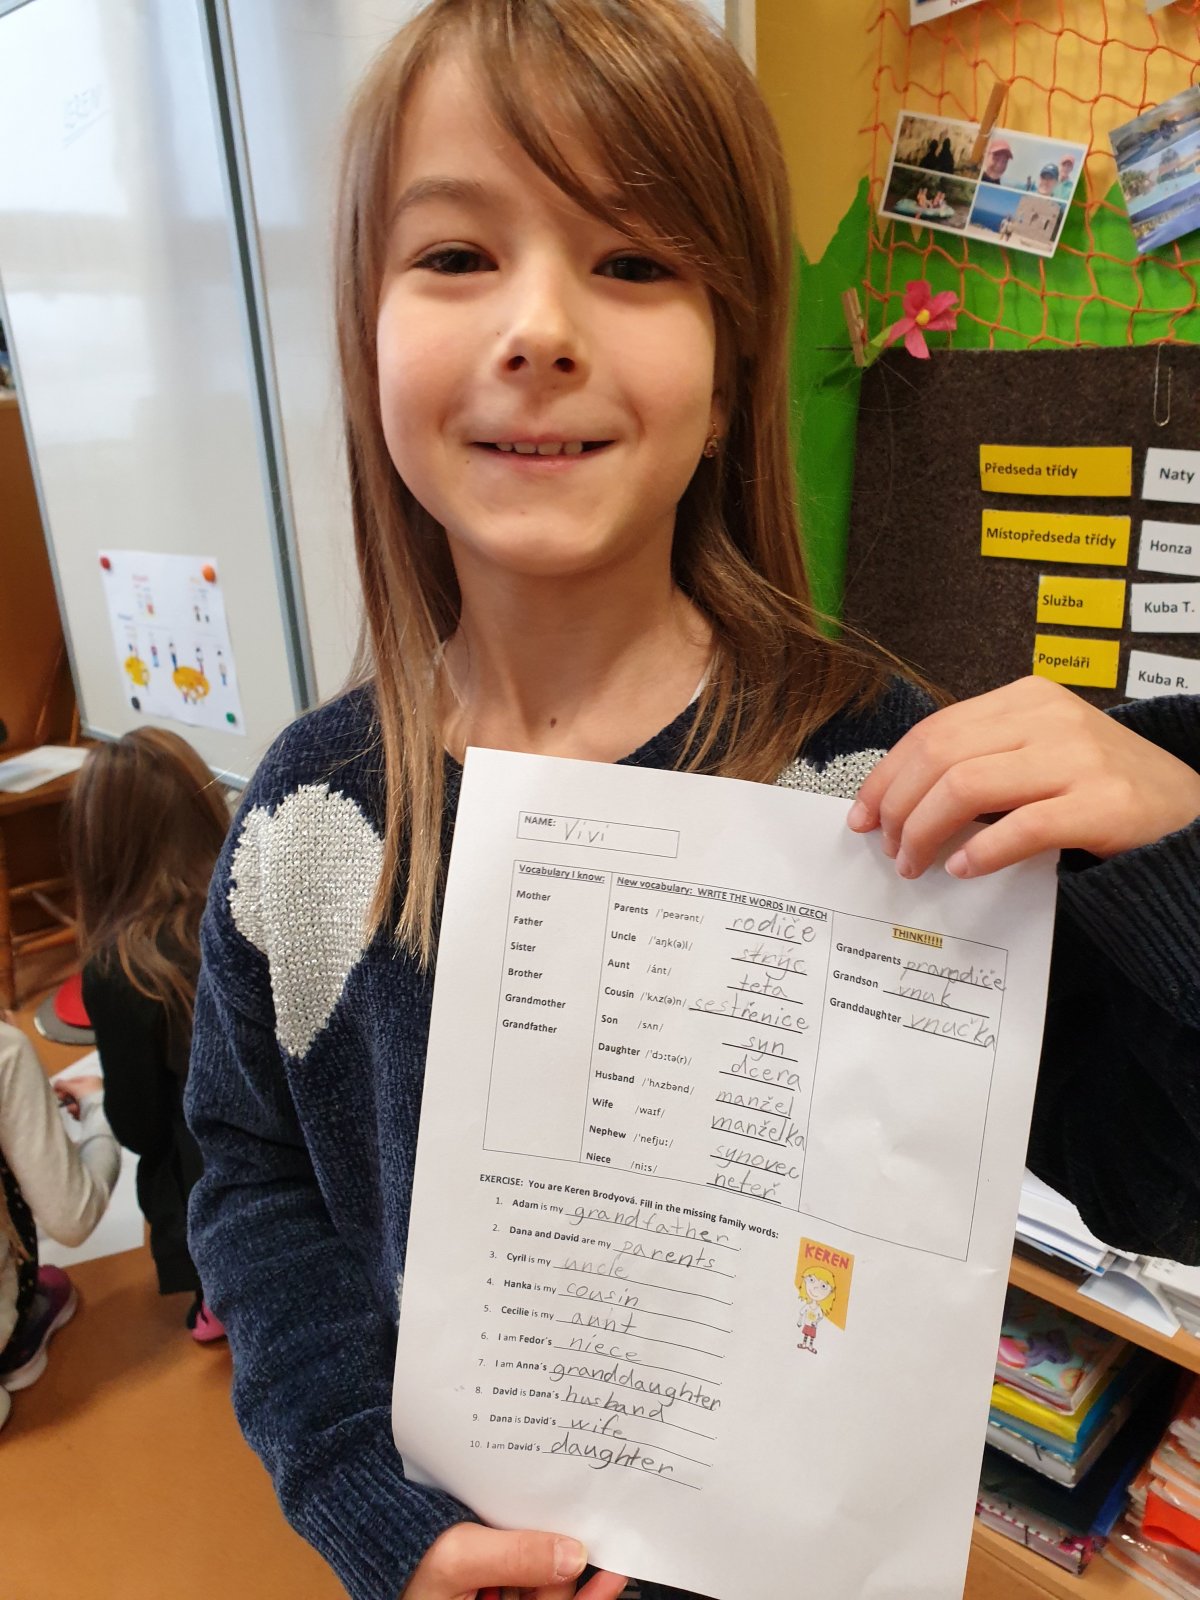 Předseda třídy Naty
Místopředseda třídy Honza
Služba Kuba T.
Popeláři Kuba R.
NAME: Vivi
Vocabulary I know:
Mother
Father
Sister
Brother
Grandmother
Grandfather
New vocabulary: WRITE THE WORDS IN CZECH
Parents /ˈpeərənt/ rodiče
Uncle /ˈaŋk(ə)l/ strýc
Aunt /ánt/ teta
Cousin /ˈkʌz(ə)n/ sestřenice
Son /sʌn/ syn
Daughter /ˈdɔːtə(r)/ dcera
Husband /ˈhʌzbənd/ manžel
Wife /waɪf/ manželka
Nephew /ˈnefjuː/ synovec
Niece /niːs/ neteř
THINK!!!!!
Grandparents prarodiče
Grandson vnuk
Granddaughter vnučka
EXERCISE: You are Keren Brodyová. Fill in the missing family words:
1. Adam is my grandfather.
2. Dana and David are my parents.
3. Cyril is my uncle.
4. Hanka is my cousin.
5. Cecilie is my aunt.
6. I am Fedor´s niece.
7. I am Anna´s granddaughter
8. David is Dana´s husband.
9. Dana is David´s wife.
10. I am David´s daughter.
KEREN